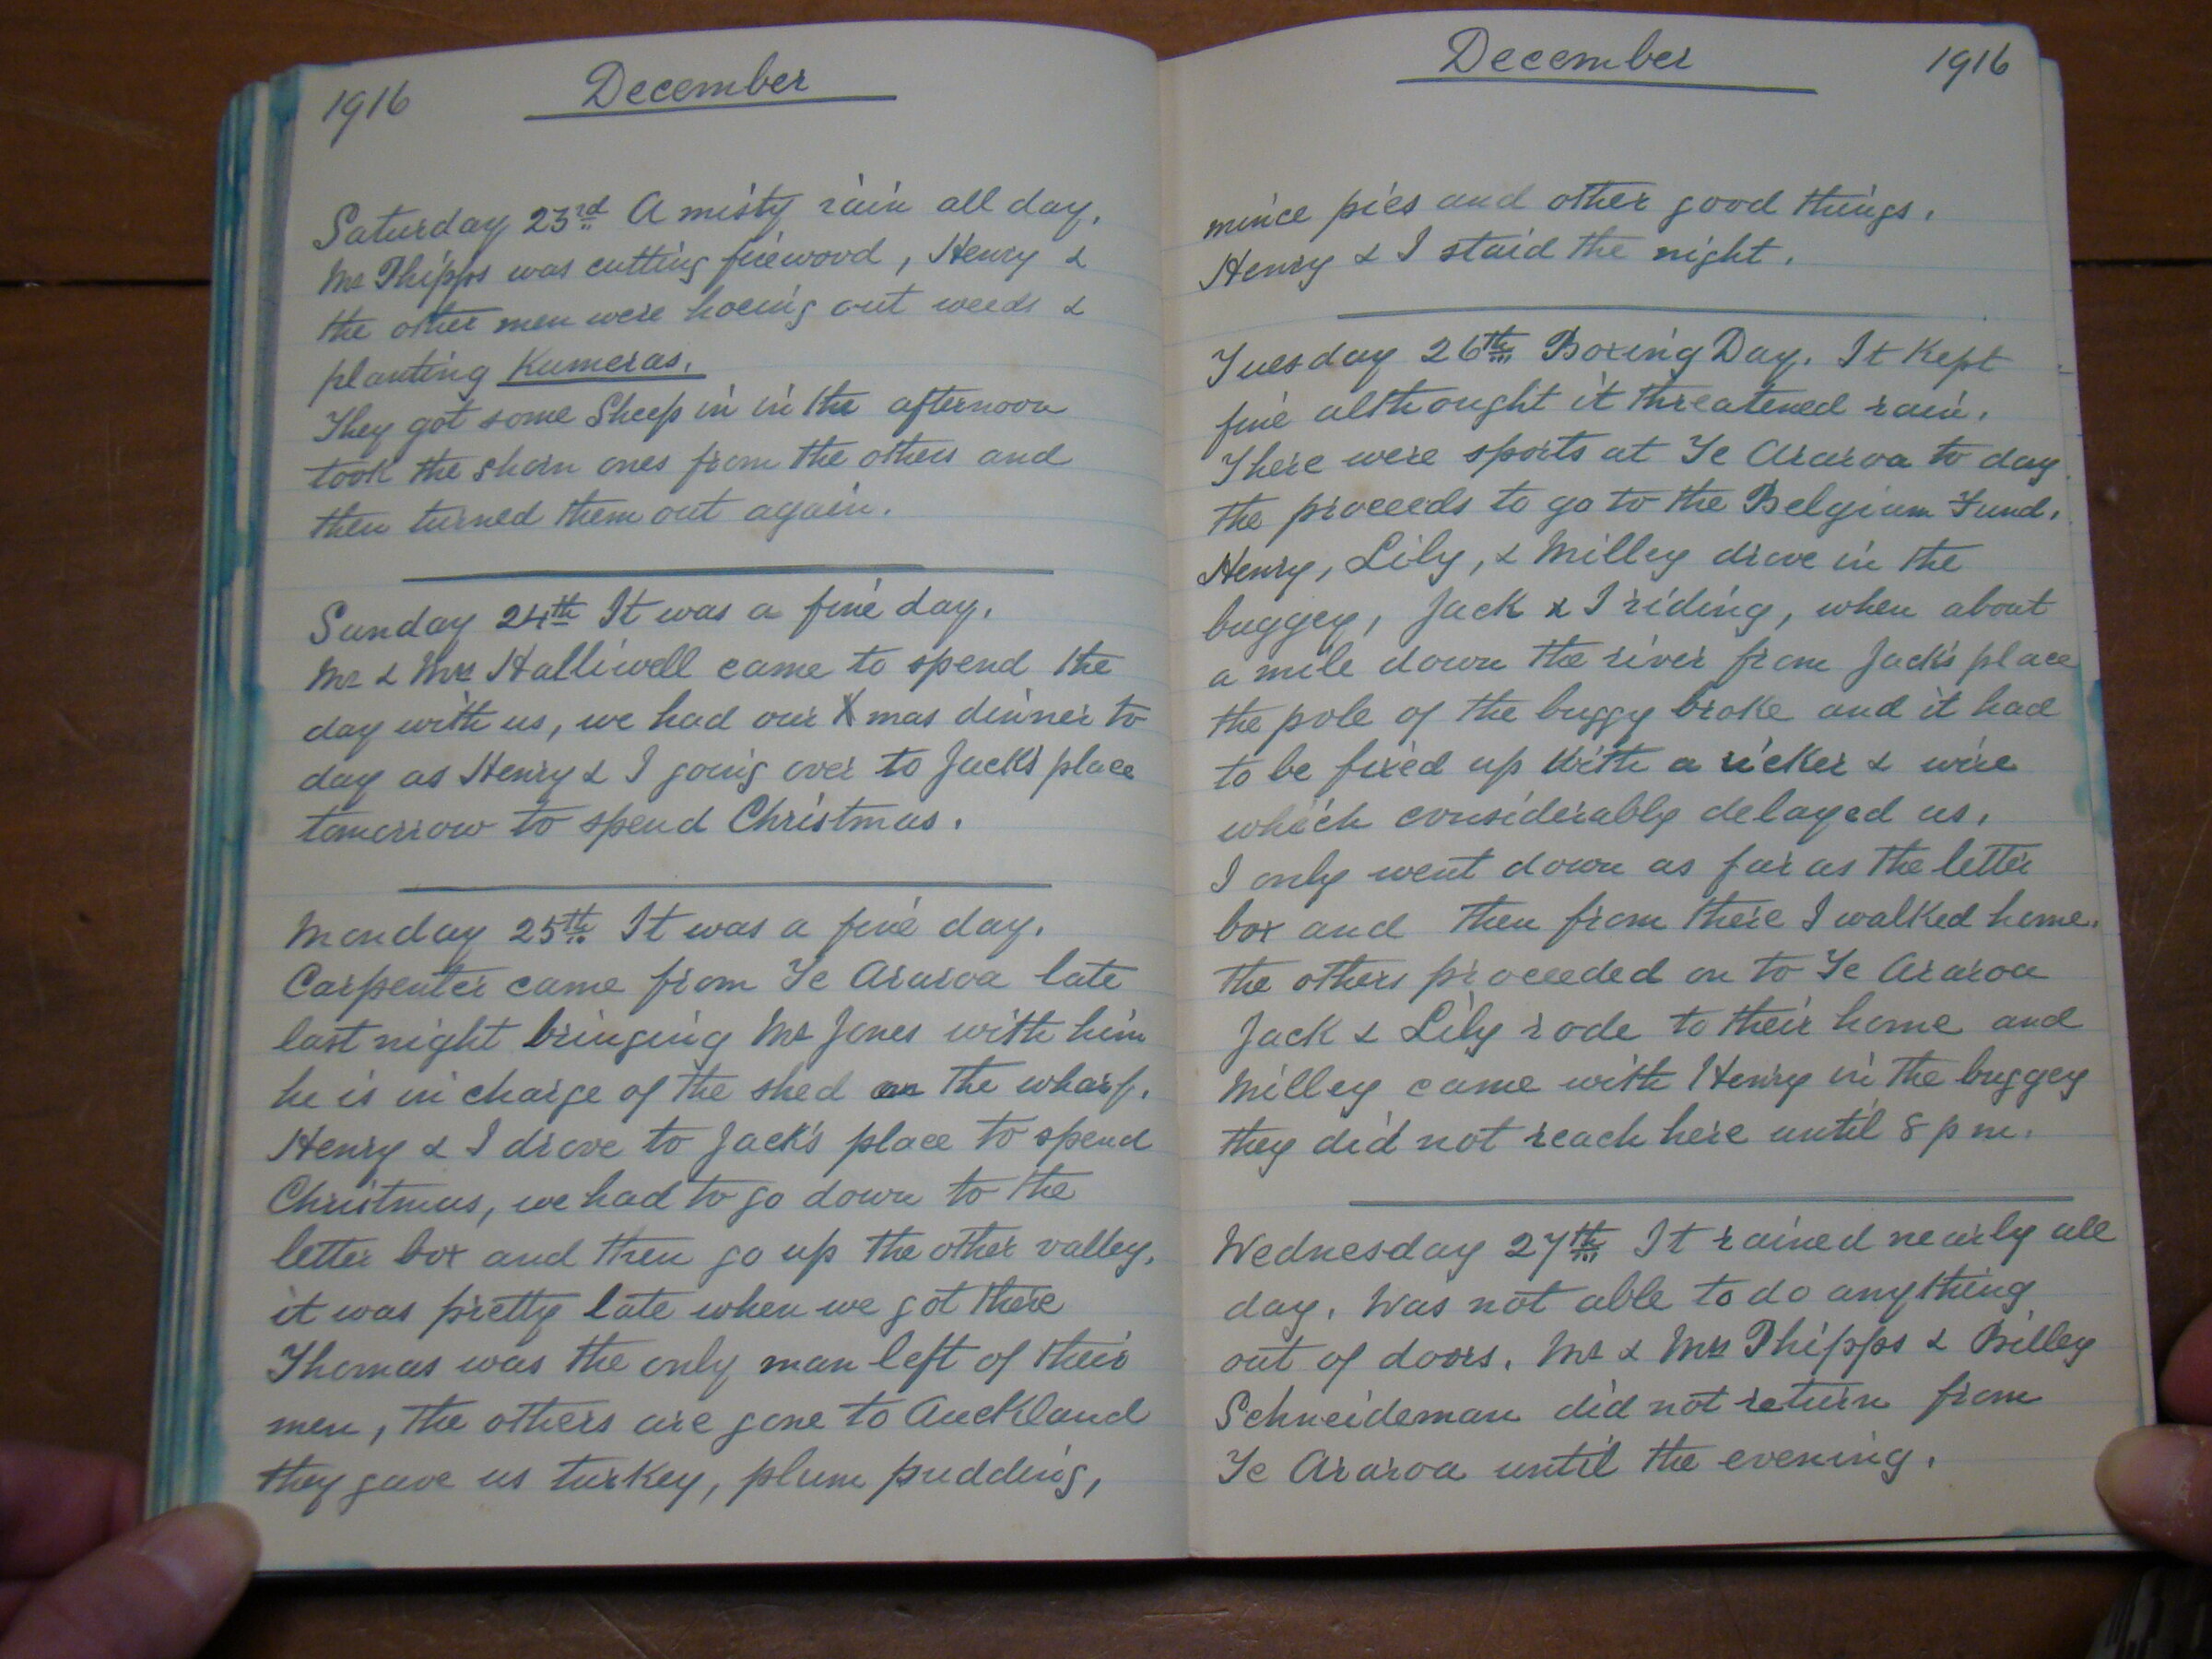 1916 December
Saturday 23rd A misty rain all day.
Mr Phipps was cutting firewood, Henry &
the other men were hoeing out weeds &
planting Kumeras.
They got some Sheep in in the afternoon
took the shorn ones from the others and
then turned them out again.
Sunday 24th It was a fine day.
Mr & Mrs Halliwell came to spend the
day with us, we had our Xmas dinner to
day as Henry & I going over to Jack's place
tomorrow to spend Christmas.
Monday 25th It was a fine day.
Carpenter came from Te Araroa late
last night bringing Mr Jones with him
he is in charge of the shed on the wharf.
Henry & I drove to Jack's place to spend
Christmas, we had to go down to the
letter box and then go up the other valley,
it was pretty late when we got there
Thomas was the only man left of their
men, the others are gone to Auckland
they gave us turkey, plum pudding,
December 1916
mince pies and other good things.
Henry & I staid the night.
Tuesday 26th Boxing Day. It Kept
fine althought it threatened rain.
There were sports at Te Araroa to day
the proceeds to go to the Belgium Fund.
Henry, Lily, & Milley drove in the
buggey, Jack & I riding, when about
a mile down the river from Jack's place
the pole of the buggy broke and it had
to be fixed up with a ricker & wire
which considerably delayed us.
I only went down as far as the letter
box and then from there I walked home.
the others proceeded on to Te Araroa
Jack & Lily rode to their home and
Milley came with Henry in the buggey
they did not reach here until 8 p m.
Wednesday 27th It rained nearly all
day. Was not able to do anything
out of doors. Mr & Mrs Phipps & Billey
Schneideman did not return from
Te Araroa until the evening.